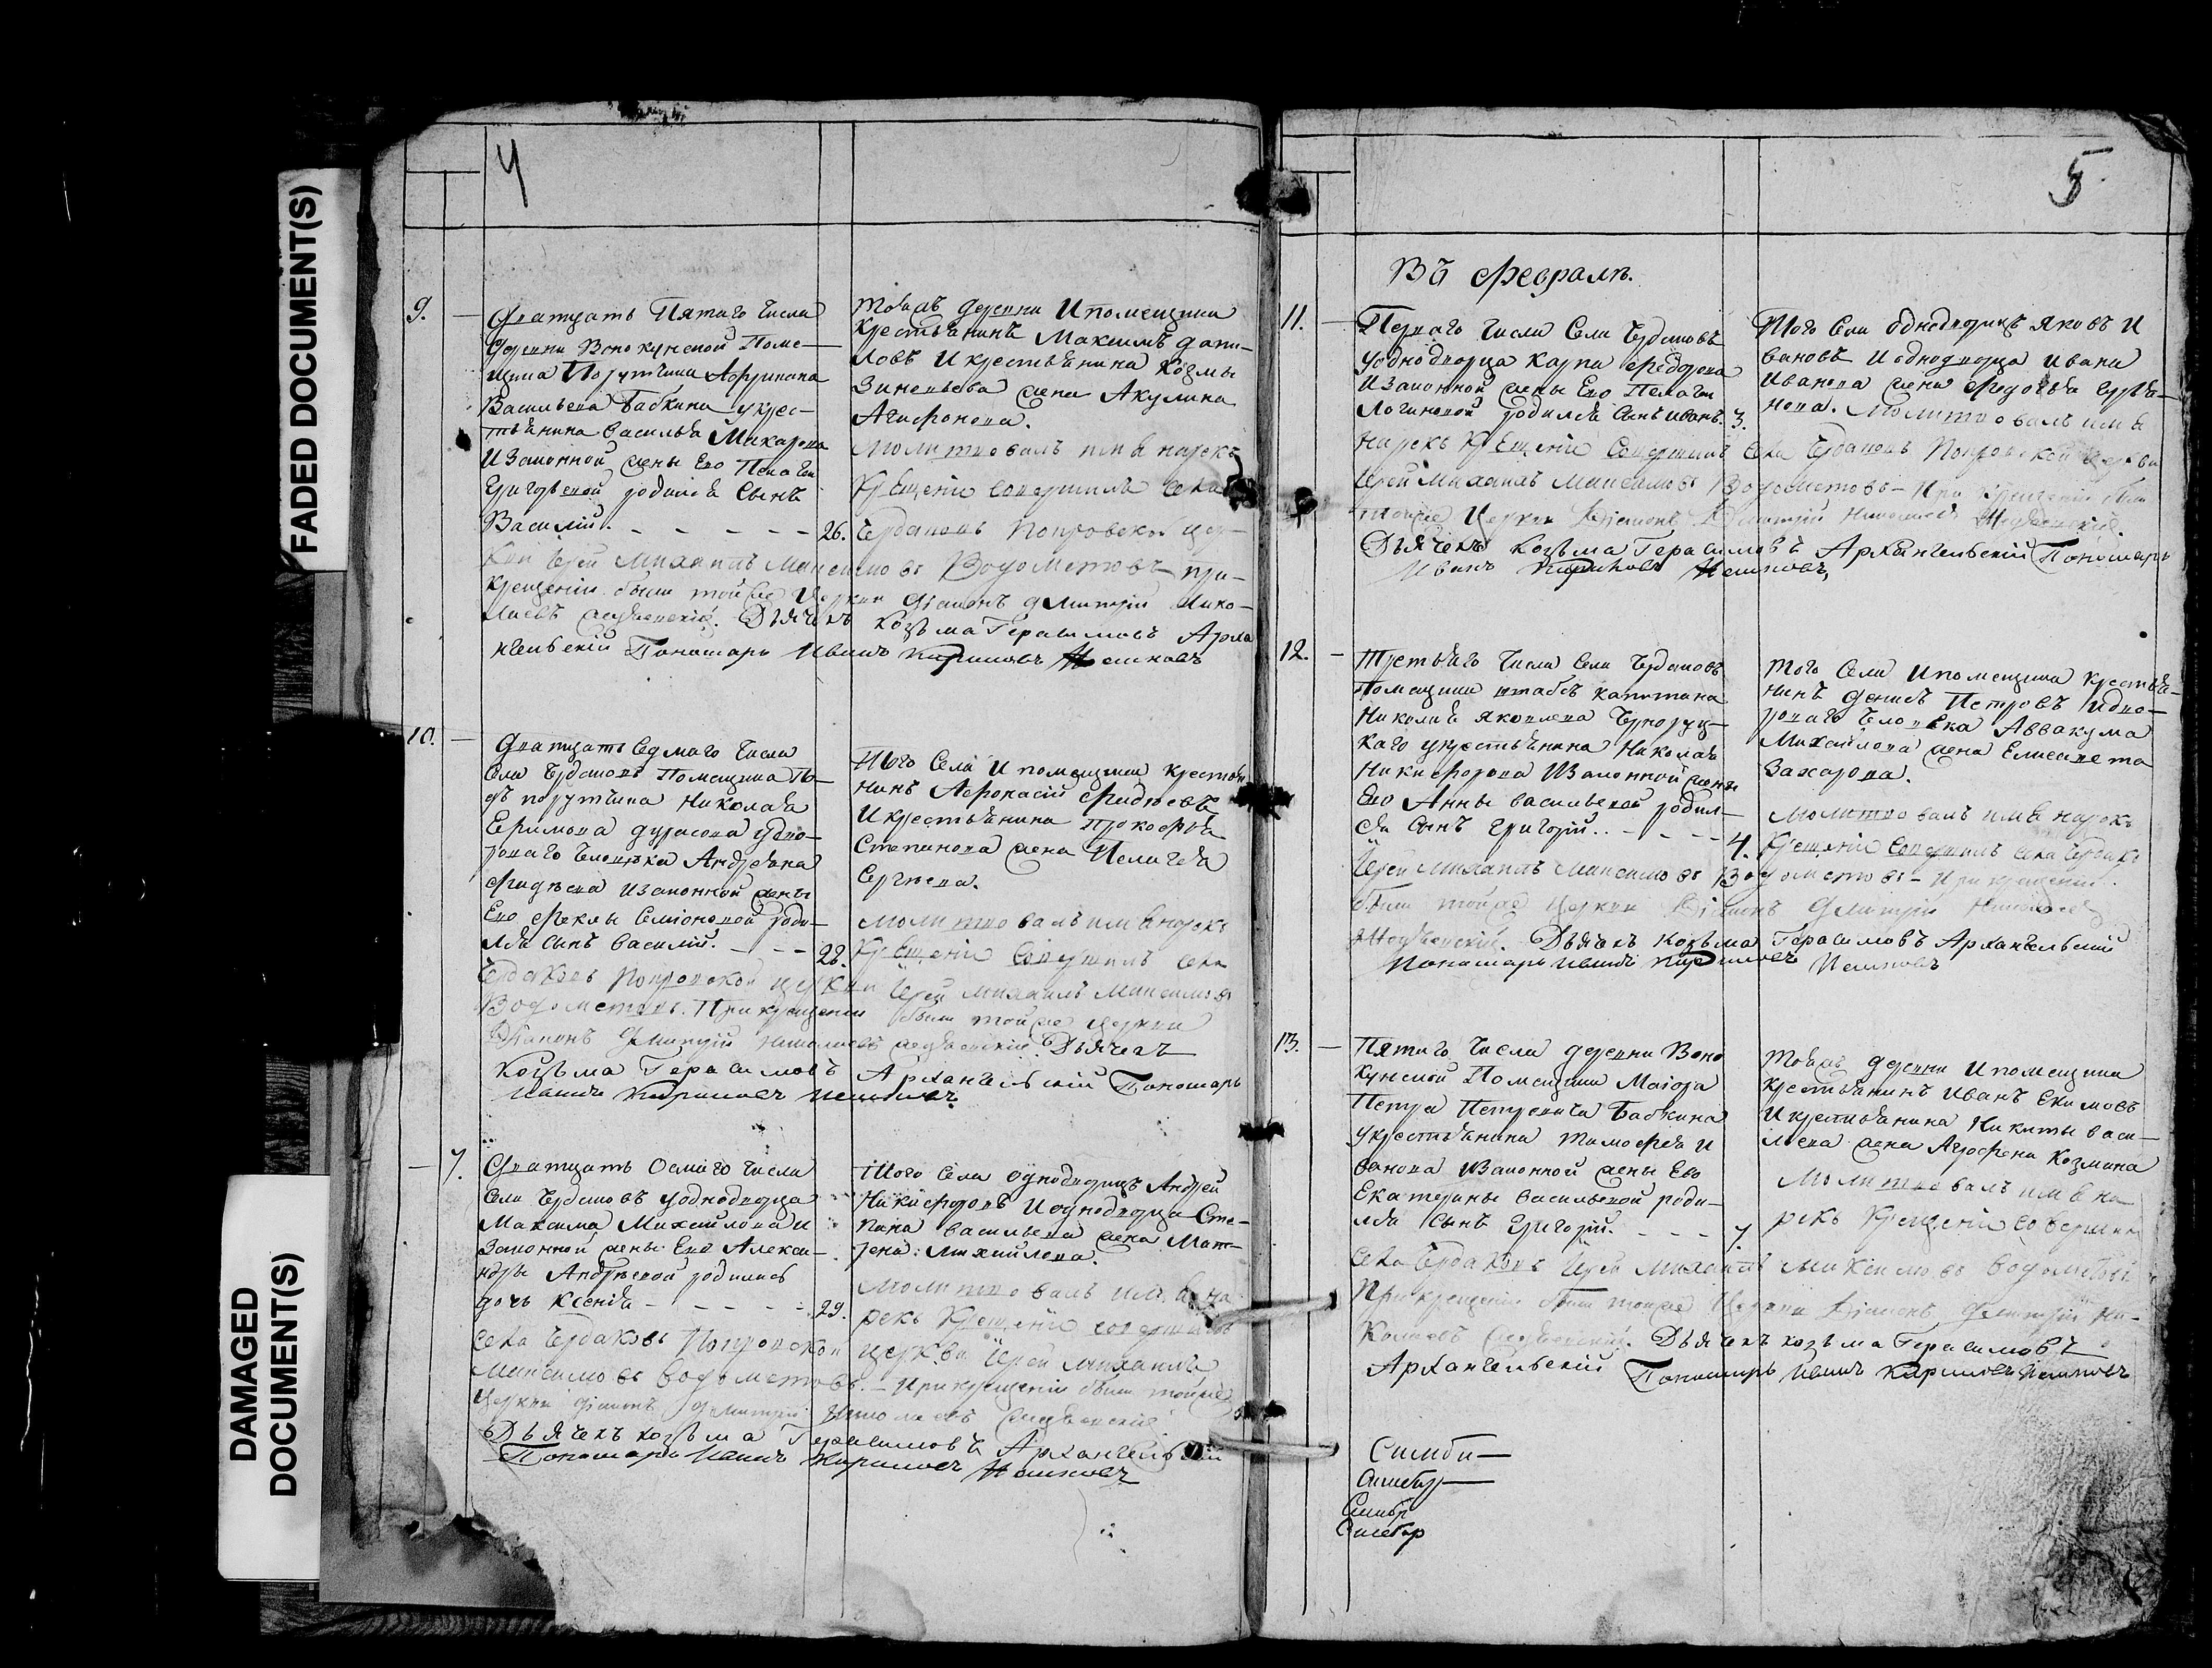 FADED DOCUMENT(S)
DAMAGED
DOCUMENT(S)
4
9.
Дватцать Пятаго числа
деревни Вонокунской Поме-
щика Порутчика
Васильева Бабкина укрес-
тьянина Василья Макарова
Изаконной жены Его Пелагеи
Григорьевой родился Сынъ
Василий. - - - - - 26.
тояжъ деревни Ипомещика
Крестьянинъ Максимъ Дани-
ловъ Икрестьянина Козмы
Зиновьева жена Акулина
Агафонова.
Молитвовалъ имя нарекъ
Крещение совершилъ села
Чурдаковъ Покровской цер-
кви Иерей Михаилъ Максимовъ Водометовъ при-
крещении были тойже Церкви Дiаконъ Дмитрий Нико-
лаевъ Дьячекъ Козьма Герасимовъ Арха
нгельский Пономарь Иванъ Кириловъ
10.
Дватцать Седмаго Числа
Села Помещика По-
дъ порутчика Николая
Ефимова Дурасова удво-
роваго Человека Андреяна
Фадеева Изаконной жены
Его Феклы Семионовой роди-
лся сынъ Василий. - - - 28.
Того Села Ипомещика крестья
нинъ Афонасий Фадеевъ
Икрестьянина Прокофья
Степанова жена Пелагея
Сергеева.
молитвовалъ имя нарекъ
Крещение Совершилъ села
Покровской церкви Иерей Михаилъ Максимовъ
Водометовъ. При крещении были тойже церкви
Дiаконъ Дмитрий Николаевъ Дьячекъ
Козьма Герасимовъ Архангельский Пономарь
Иванъ Кириловъ
7.
Дватцать Осмаго Числа
Села уоднодворца
Максима Михайлова И
Законной жены Его Алекса-
ндры Андреевой родилась
дочь Ксения - - - - - 29.
Того Села однодворецъ Андрей
Никифоровъ Иоднодворца Сте-
пана Васильева жена Мат-
рена Михайлова.
Молитвовалъ имя на
рекъ Крещение совершилъ
села Покровской церкви Иерей Михаилъ
Максимовъ Водометовъ. - При крещении были тойже
Церкви Дiаконъ Дмитрий Николаевъ
Дьячекъ козьма Герасимовъ Архангельский
Пономарь Иванъ Кириловъ
5
Въ Феврале.
11.
Перваго числа Села
уоднодворца Карпа Федорова
Изаконной жены Его Пелагеи
Логиновой родился Сынъ Иванъ. 3.
Того Села однодворецъ Яковъ И
вановъ Иоднодворца Ивана
Иванова жена Федосья
Молитвовалъ имя
нарекъ Крещение Совершилъ села Покровской церкви
Иерей Михаилъ Максимовъ Водометовъ - При Крещении были
тойже Церкви Дiаконъ Дмитрий Николаевъ
Дьячекъ Козьма Герасимовъ Архангельский Пономарь
Иванъ Кириловъ
12.
Третьяго Числа Села
Помещика штабсъ капитана
Николая Яковлева
укрестьянина Николая
Никифорова Изаконной жены
Его Анны Васильевой родил-
ся Сынъ Григорий. - - - - 4.
того Села Ипомещика крестья-
нинъ Денисъ Петровъ Идво-
роваго Человека Аввакума
Михайлова жена Елисавета
Захарова.
молитвовалъ имя нарекъ
Крещение Совершилъ села
Иерей Михаилъ Максимовъ Водометовъ - При крещении
были тойже церкви Дiаконъ Дмитрий Николаевъ
Дьячекъ Козьма Герасимовъ Архангельский
Пономарь Иванъ Кириловъ
13.
Пятаго Числа деревни Воно
кунской Помещика Маiора
Петра Петровича Бабкина
Укрестьянина Тимофея И
ванова Изаконной жены Его
Екатерины Васильевой роди-
лся Сынъ Григорий. - - - 7.
тояжъ деревни Ипомещика
крестьянинъ Иванъ Екимовъ
Икрестьянина Никиты Васи-
льева жена Агрофена Козмина
Молитвовалъ имя на
рекъ Крещение совершилъ
села Иерей Михаилъ Максимовъ Водометовъ
При крещении были тойже Церкви Дiаконъ Дмитрий Ни-
колаевъ Дьячекъ козьма Герасимовъ
Архангельский Пономарь Иванъ Кириловъ
Симби-
Симбир-
Симбр
Симбир